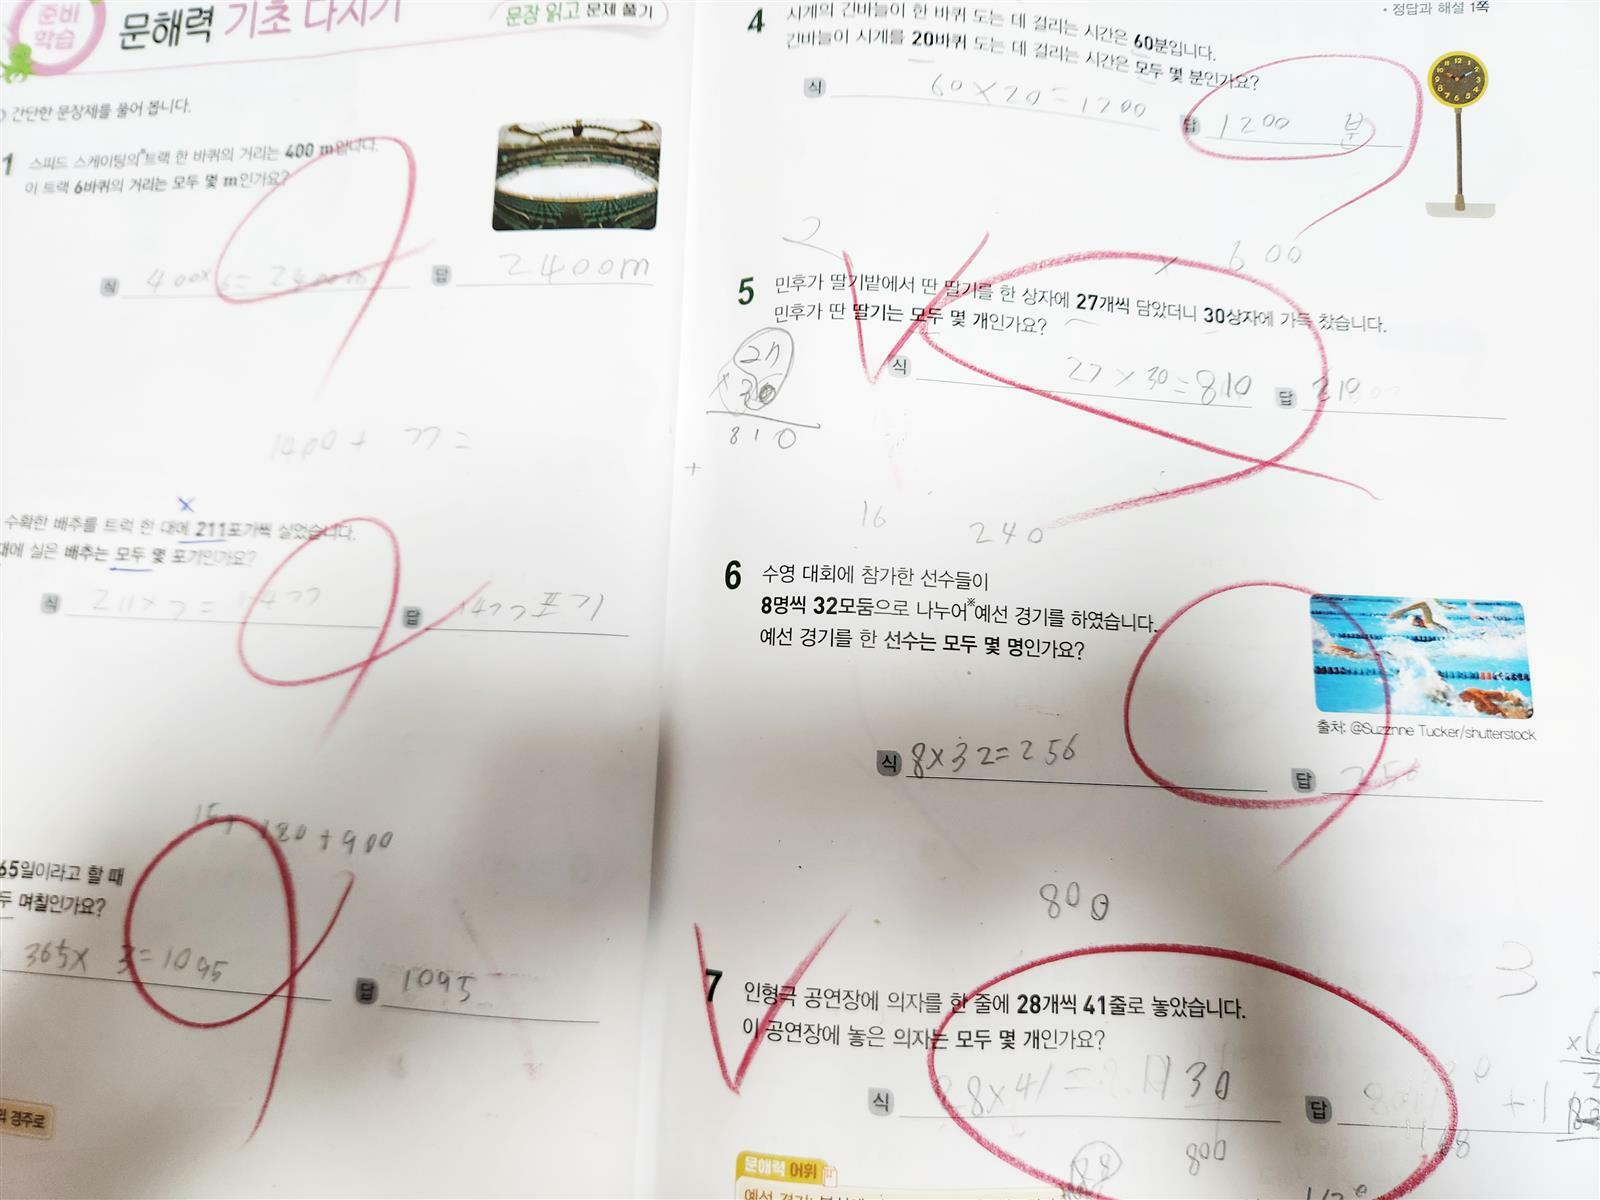 준비
학습
문해력 기초 다지기
문장 읽고 문제 풀기
간단한 문장제를 풀어 봅니다.
1 스피드 스케이팅의※트랙 한 바퀴의 거리는 400 m입니다.
이 트랙 6바퀴의 거리는 모두 몇 m인가요?
식 400×6=2400m 답 2400m
1400+ 77=
수확한 배추를 트럭 한 대에 211포기씩 실었습니다.
대에 실은 배추는 모두 몇 포기인가요?
식 211×7=1477 답 1477포기
15+180+900
65일이라고 할 때
두 며칠인가요?
365×3=1095 답 1095
경주로
• 정답과 해설 1쪽
4 시계의 긴바늘이 한 바퀴 도는 데 걸리는 시간은 60분입니다.
긴바늘이 시계를 20바퀴 도는 데 걸리는 시간은 모두 몇 분인가요?
식 60×20=1200 답 1200 분
2
× 600
5 민후가 딸기밭에서 딴 딸기를 한 상자에 27개씩 담았더니 30상자에 가득 찼습니다.
민후가 딴 딸기는 모두 몇 개인가요?
27
×30
810
식 27×30=810 답
+
16
240
6 수영 대회에 참가한 선수들이
8명씩 32모둠으로 나누어※예선 경기를 하였습니다.
예선 경기를 한 선수는 모두 몇 명인가요?
출처: @Suzznne Tucker/shutterstock
식 8×32=256 답 256
800
3
7 인형극 공연장에 의자를 한 줄에 28개씩 41줄로 놓았습니다.
이 공연장에 놓은 의자는 모두 몇 개인가요?
식 28×41= 답
800
문해력 어휘